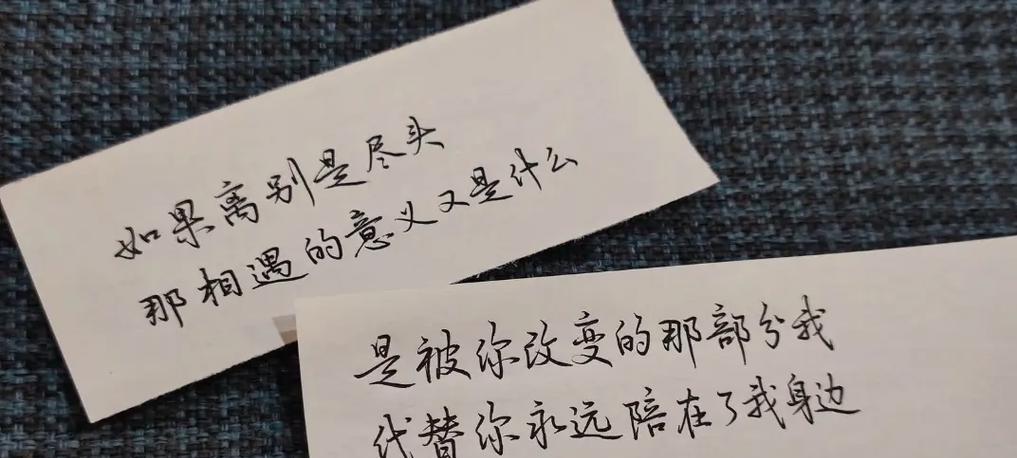 如果离别是尽头
那相遇的意义又是什么
是被你改变的那部分我
代替你永远陪在了我身边